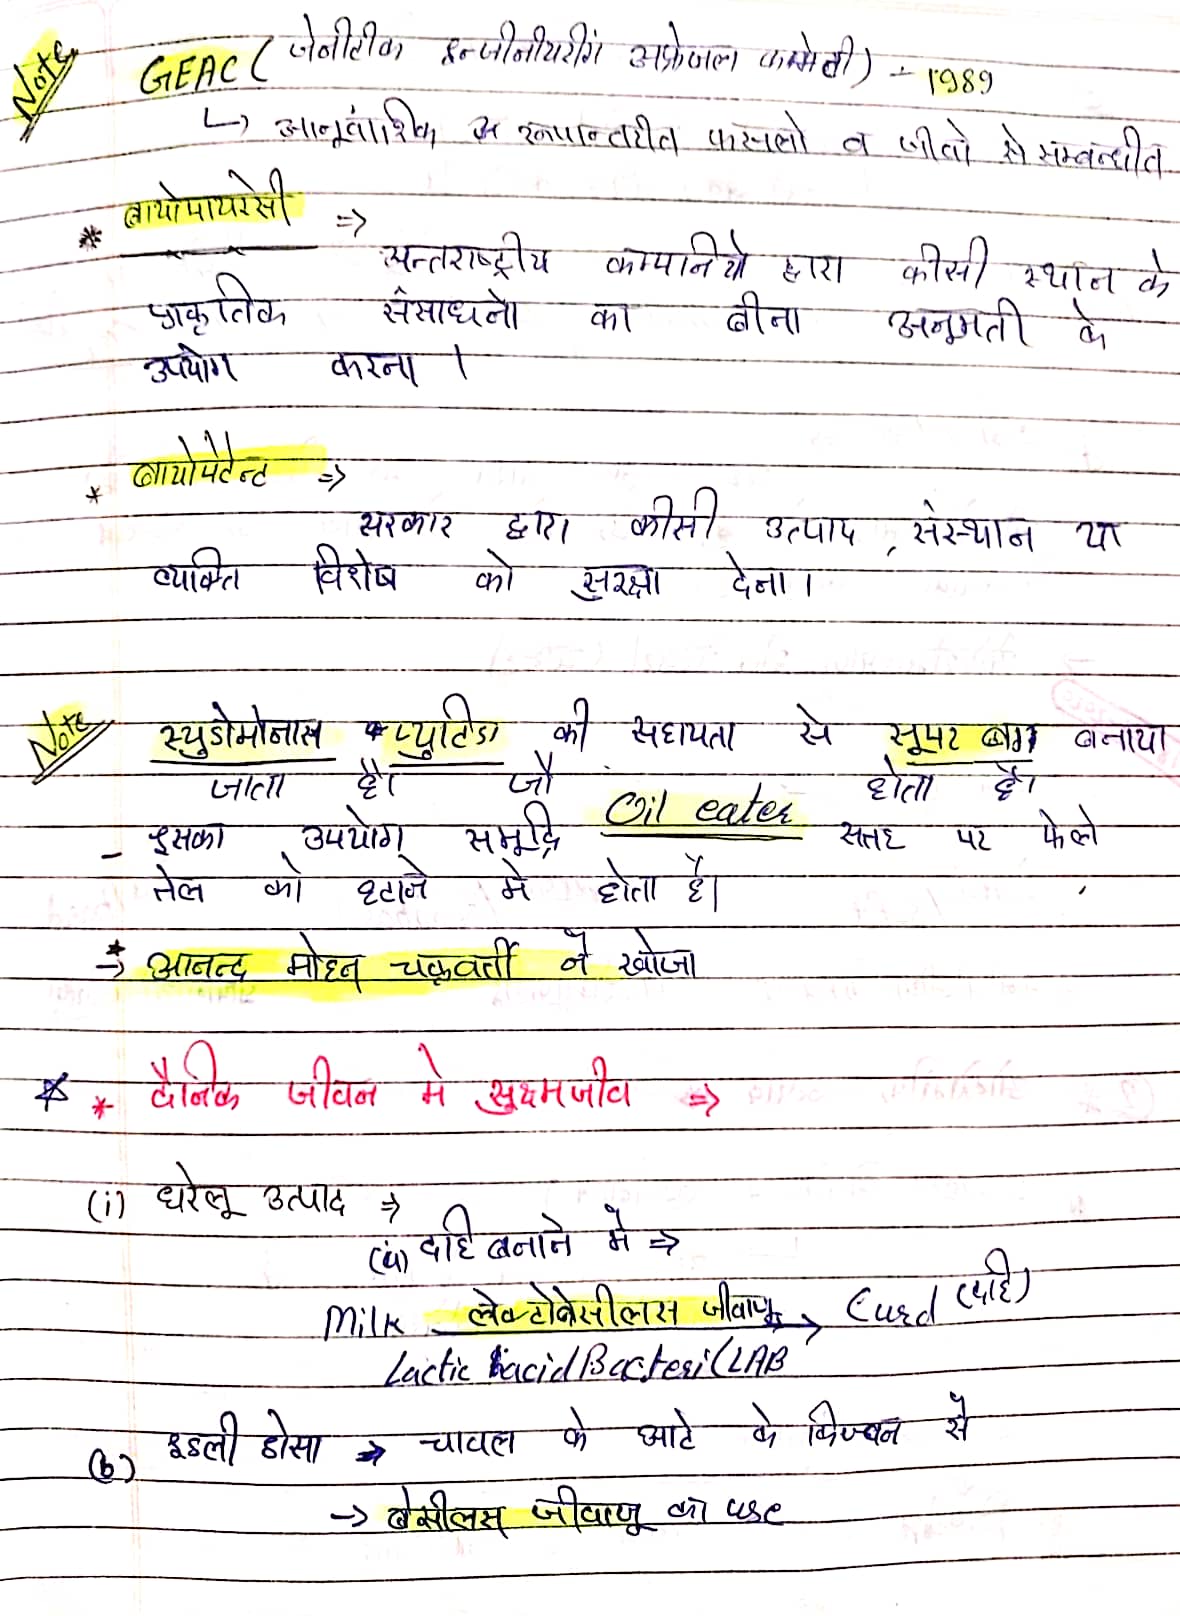 Note
GEAC ( जेनीटीक इन्जीनीयरींग अप्रेजल कम्मेटी) - 1989
↳ आनूवांशिक रूपान्तरीत फसलो व जीवो से सम्बन्धीत
* बायोपायरेसी ⇒
अन्तराष्ट्रीय कम्पानियो द्वारा कीसी स्थान के
प्राकृतिक संसाधनो का बीना अनूमती के
उपयोग करना ।
* बायोपेटेन्ट ⇒
सरकार द्वारा कीसी उत्पाद , संस्थान या
व्यक्ति विशेष को सुरक्षा देना ।
Note
स्युडोमोनास प्युटिडा की सहायता से सूपर बग बनाया
जाता है। जो होता है।
Oil eater
- इसका उपयोग समूद्रि सतह पर फेले
तेल को हटाने मे होता है।
* → आनन्द मोहन चक्रवर्ती ने खोजा
* * दैनिक जीवन मे सुक्ष्मजीव ⇒
(i) घरेलू उत्पाद ⇒
(a) दहि बनाने मे ⇒
Milk लेक्टोबेसीलस जीवाणू → Curd (दहि)
Lactic acid Bacteri (LAB
(b) इडली डोसा ⇒ चावल के आटे के किण्वन से
→ बेसीलस जीवाणू का use